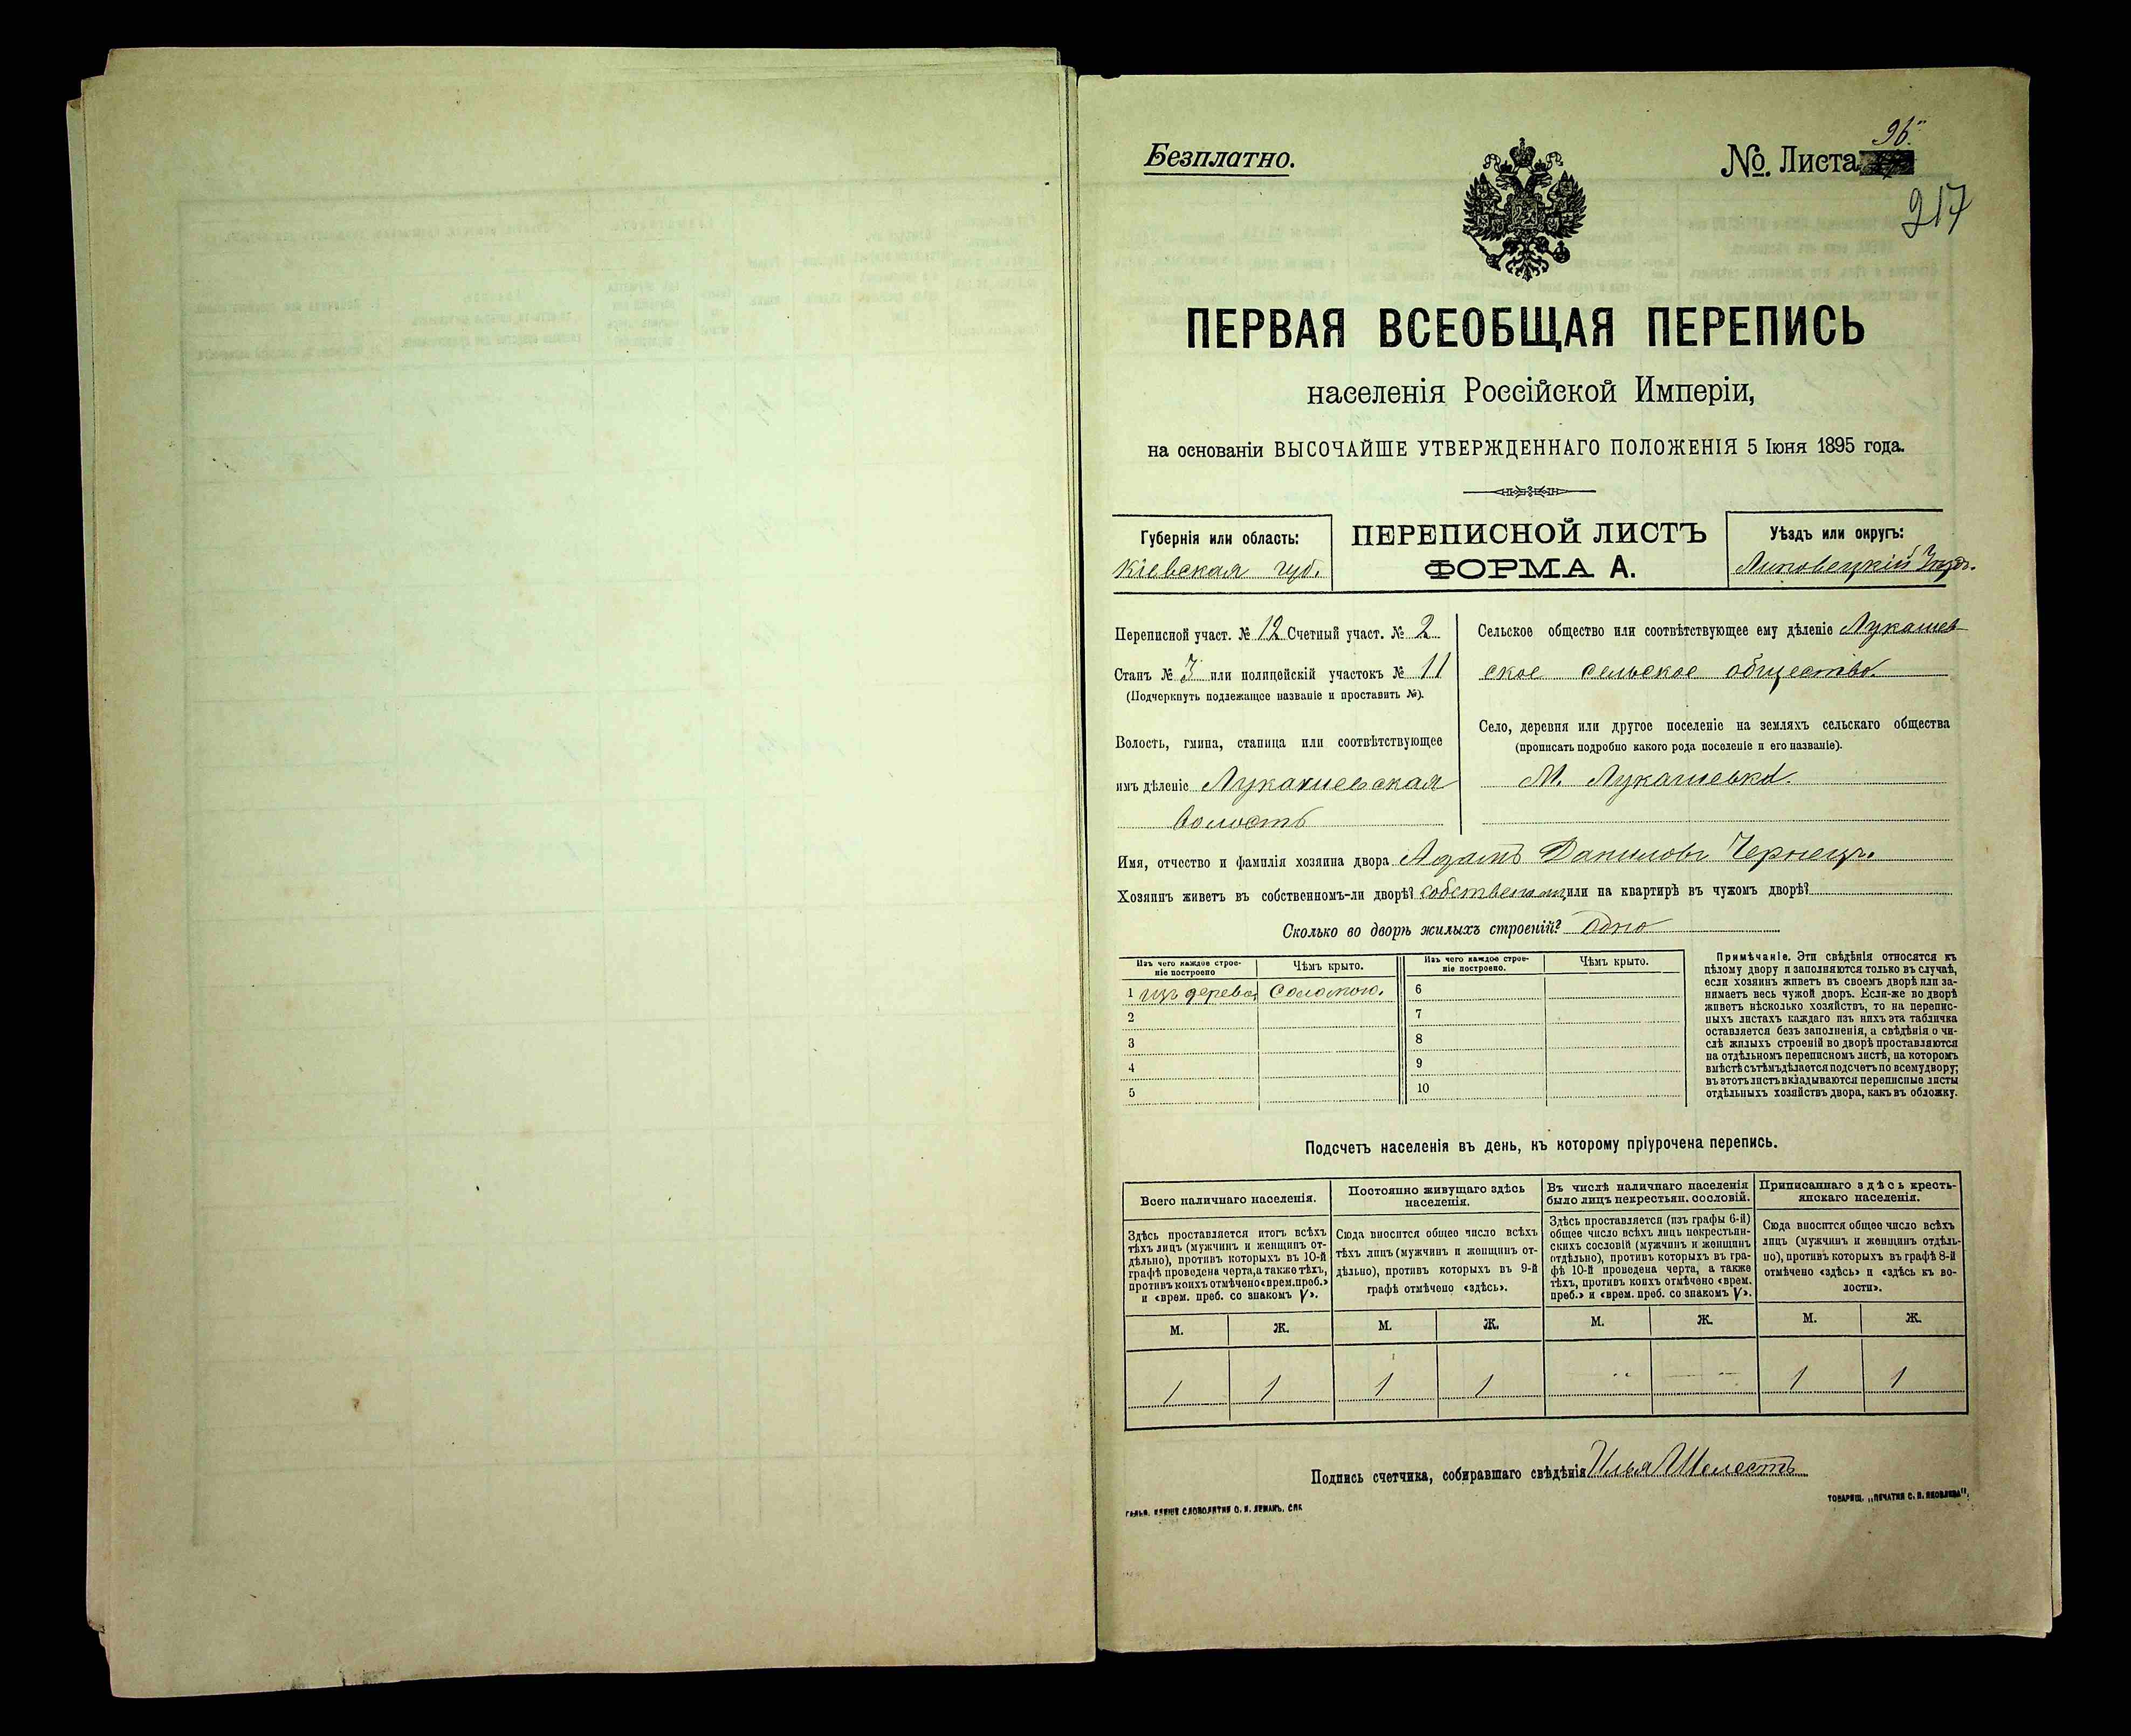 Безплатно.
№ Листа
96.
217
ПЕРВАЯ ВСЕОБЩАЯ ПЕРЕПИСЬ
населенія Россійской Имперіи,
на основаніи ВЫСОЧАЙШЕ УТВЕРЖДЕННАГО ПОЛОЖЕНІЯ 5 Іюня 1895 года.
Губернія или область:
Кіевская губ.
ПЕРЕПИСНОЙ ЛИСТЪ
ФОРМА А.
Уѣздъ или округъ:
Липовецкій Уѣздъ.
Переписной участ. № 12 Счетный участ. № 2
Станъ № 3 или полицейскій участокъ № 11
(Подчеркнуть подлежащее названіе и проставить №).
Волость, гмина, станица или соотвѣтствующее
имъ дѣленіе Лукашевская
волость
Сельское общество или соотвѣтствующее ему дѣленіе Лукашев
ское сельское общество.
Село, деревня или другое поселеніе на земляхъ сельскаго общества
(прописать подробно какого рода поселеніе и его названіе).
М. Лукашевка.
Имя, отчество и фамилія хозяина двора Адамъ Даниловъ Чернецъ.
Хозяинъ живетъ въ собственномъ-ли дворѣ? собственом или на квартирѣ въ чужомъ дворѣ?
Сколько во дворѣ жилыхъ строеній? Одно
Изъ чего каждое строе-
ніе построено
Чѣмъ крыто.
Изъ чего каждое строе-
ніе построено.
Чѣмъ крыто.
1 изъ дерева, Соломою. 6
2 7
3 8
4 9
5 10
Примѣчаніе. Эти свѣдѣнія относятся къ
цѣлому двору и заполняются только въ случаѣ,
если хозяинъ живетъ въ своемъ дворѣ или за-
нимаетъ весь чужой дворъ. Если-же во дворѣ
живетъ нѣсколько хозяйствъ, то на перепис-
ныхъ листахъ каждаго изъ нихъ эта табличка
оставляется безъ заполненія, а свѣдѣнія о чи-
слѣ жилыхъ строеній во дворѣ проставляются
на отдѣльномъ переписномъ листѣ, на которомъ
вмѣстѣ съ тѣмъ дѣлается подсчетъ по всему двору;
въ этотъ листъ вкладываются переписные листы
отдѣльныхъ хозяйствъ двора, какъ въ обложку.
Подсчетъ населенія въ день, къ которому пріурочена перепись.
Всего наличнаго населенія.
Здѣсь проставляется итогъ всѣхъ
тѣхъ лицъ (мужчинъ и женщинъ от-
дѣльно), противъ которыхъ въ 10-й
графѣ проведена черта, а также тѣхъ,
противъ коихъ отмѣчено «врем. преб.»
и «врем. преб. со знакомъ V».
Постоянно живущаго здѣсь
населенія.
Сюда вносится общее число всѣхъ
тѣхъ лицъ (мужчинъ и женщинъ от-
дѣльно), противъ которыхъ въ 9-й
графѣ отмѣчено «здѣсь».
Въ числѣ наличнаго населенія
было лицъ некрестьян. сословій.
Здѣсь проставляется (изъ графы 6-й)
общее число всѣхъ лицъ некрестьян-
скихъ сословій (мужчинъ и женщинъ
отдѣльно), противъ которыхъ въ гра-
фѣ 10-й проведена черта, а также
тѣхъ, противъ коихъ отмѣчено «врем.
преб.» и «врем. преб. со знакомъ V».
Приписаннаго здѣсь кресть-
янскаго населенія.
Сюда вносится общее число всѣхъ
лицъ (мужчинъ и женщинъ отдѣль-
но), противъ которыхъ въ графѣ 8-й
отмѣчено «здѣсь» и «здѣсь къ во-
лости».
М. Ж. М. Ж. М. Ж. М. Ж.
1 1 1 1 1 1
Подпись счетчика, собиравшаго свѣдѣнія Илья Шелестъ
ГАЛЬВ. КЛИШЕ СЛОВОЛИТНИ О. И. ЛЕМАНЪ. СПБ
ТОВАРИЩ. „ПЕЧАТНЯ С. П. ЯКОВЛЕВА".